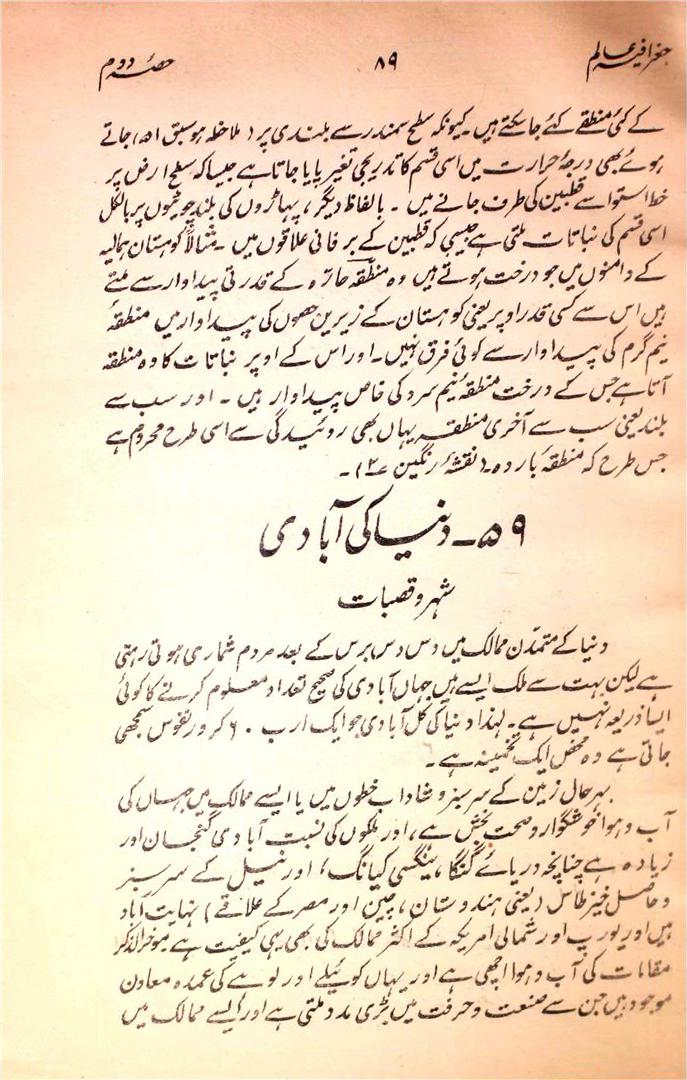 جغرافیہ عالم ۸۹ حصۂ دوم
کے کئی منطقے کئے جا سکتے ہیں۔ کیونکہ سطح سمندر سے بلندی پر (ملاحظہ ہو سبق ۵۱) جاتے
ہوئے بھی درجۂ حرارت میں اسی قسم کا تدریجی تغیر پایا جاتا ہے جیسا کہ سطح ارض پر
خط استوا سے قطبین کی طرف جانے میں ۔ بالفاظ دیگر، پہاڑوں کی بلند چوٹیوں پر بالکل
اسی قسم کی نباتات ملتی ہے جیسی کہ قطبین کے برفانی علاقوں میں ۔ مثالاً کوہستان ہمالیہ
کے دامنوں میں جو درخت ہوتے ہیں وہ منطقہ حارہ کے قدرتی پیداوار سے ملتے
ہیں اس سے کسی قدر اوپر یعنی کوہستان کے زیریں حصوں کی پیداوار میں منطقۂ
نیم گرم کی پیداوار سے کوئی فرق نہیں۔ اور اس کے اوپر نباتات کا وہ منطقہ
آتا ہے جس کے درخت منطقۂ نیم سرد کی خاص پیداوار ہیں ۔ اور سب سے
بلند یعنی سب سے آخری منطقہ یہاں بھی روئیدگی سے اسی طرح محروم ہے
جس طرح کہ منطقہ باردہ۔ (نقشۂ رنگین ۲)۔
۵۹۔ دنیا کی آبادی
شہر و قصبات
دنیا کے متمدّن ممالک میں دس دس برس کے بعد مردم شماری ہوتی رہتی
ہے لیکن بہت سے ملک ایسے ہیں جہاں آبادی کی صحیح تعداد معلوم کرنے کا کوئی
ایسا ذریعہ نہیں ہے۔ لہذا دنیا کی کل آبادی جو ایک ارب ۶۰ کرور نفوس سمجھی
جاتی ہے وہ محض ایک تخمینہ ہے ۔
بہرحال زمین کے سرسبز و شاداب خطوں میں یا ایسے ممالک میں جہاں کی
آب و ہوا خوشگوار و صحت بخش ہے، اور ملکوں کی نسبت آبادی گنجان اور
زیادہ ہے چنانچہ دریائے گنگا، ینگسی کیانگ، اور نیل کے سرسبز
و حاصل خیز طاس (یعنی ہندوستان، چین اور مصر کے علاقے) نہایت آباد
ہیں اور یورپ اور شمالی امریکہ کے اکثر ممالک کی بھی یہی کیفیت ہے موخرالذکر
مقامات کی آب و ہوا اچھی ہے اور یہاں کوئیلے اور لوہے کی عمدہ معادن
موجود ہیں جن سے صنعت و حرفت میں بڑی مدد ملتی ہے اور ایسے ممالک میں